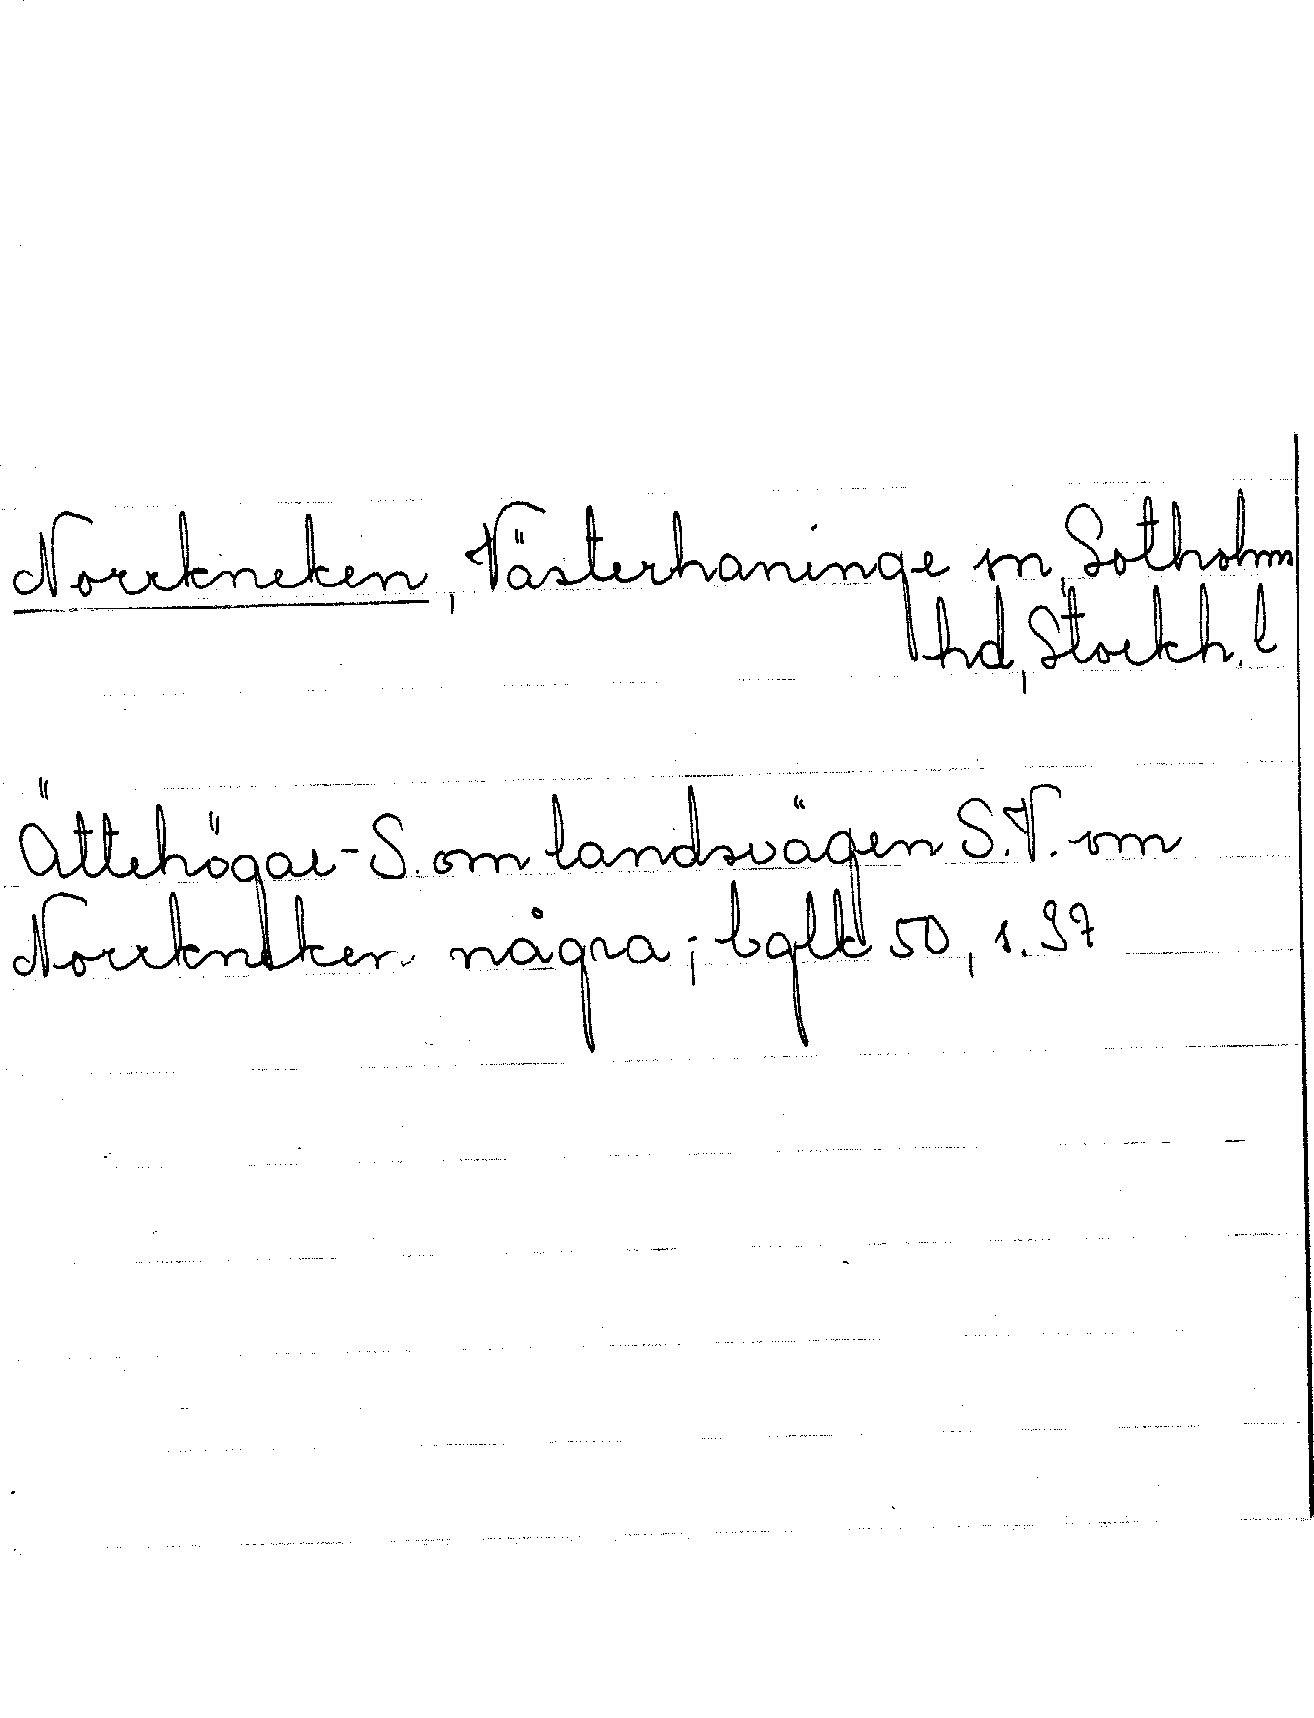 Norrkneken, Västerhaninge sn, Sotholms
hd, Stockh. l
Ättehögar - S. om landsvägen S.V. om
Norrkneken några; bglk 50, s. 37